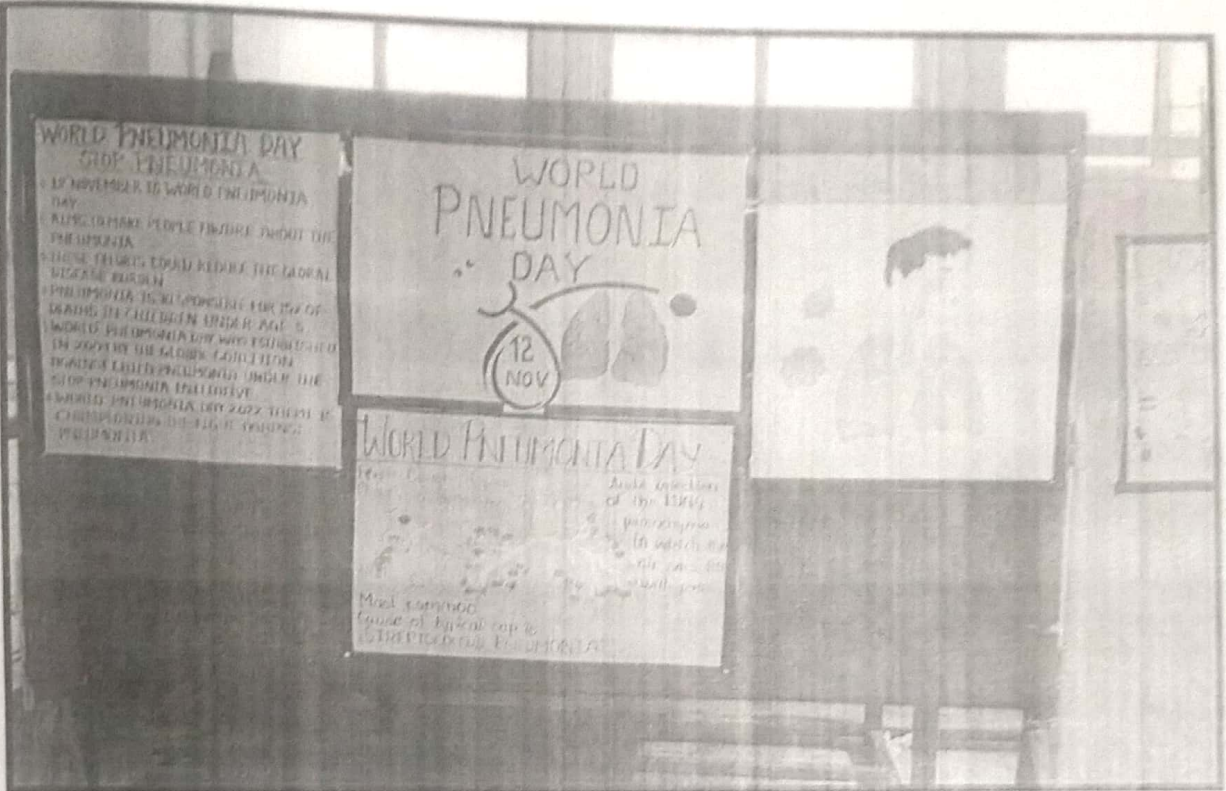 WORLD PNEUMONIA DAY
STOP PNEUMONIA
12 NOVEMBER IS WORLD PNEUMONIA
DAY
AIMS TO MAKE PEOPLE AWARE ABOUT THE
PNEUMONIA
THESE EFFORTS COULD REDUCE THE GLOBAL
DISEASE BURDEN
PNEUMONIA IS RESPONSIBLE FOR 15% OF
DEATHS IN CHILDREN UNDER AGE 5
WORLD PNEUMONIA DAY WAS ESTABLISHED
IN 2009 BY THE GLOBAL COALITION
AGAINST CHILD PNEUMONIA UNDER THE
STOP PNEUMONIA INITIATIVE
WORLD PNEUMONIA DAY 2022 THEME IS
CHAMPIONING THE FIGHT
PNEUMONIA
WORLD
PNEUMONIA
DAY
12
NOV
WORLD PNEUMONIA DAY
Acute infection
of the lung
parenchyma
in which the
Most common
Cause of typical cap is
STREPTOCOCCUS PNEUMONIA